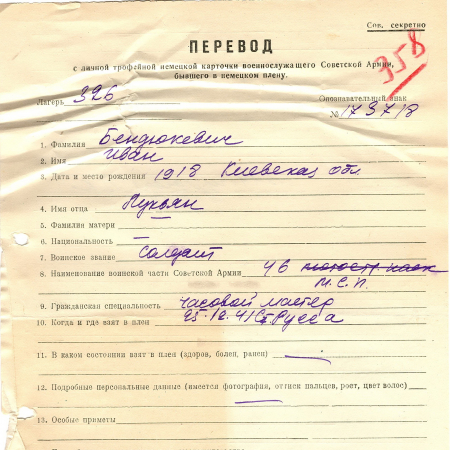 Сов. секретно
ПЕРЕВОД
358
с личной трофейной немецкой карточки военнослужащего Советской Армии,
бывшего в немецком плену.
Лагерь 326
Опознавательный знак
№ 173718
1. Фамилия Бендюкевич
2. Имя Иван
3. Дата и место рождения 1918 Киевская обл
4. Имя отца Лукьян
5. Фамилия матери —
6. Национальность —
7. Воинское звание Солдат
8. Наименование воинской части Советской Армии 46
М.С.П.
9. Гражданская специальность Часовой мастер
10. Когда и где взят в плен Ст. Русса
11. В каком состоянии взят в плен (здоров, болен, ранен) —
12. Подробные персональные данные (имеется фотография, оттиск пальцев, рост, цвет волос)
—
13. Особые приметы